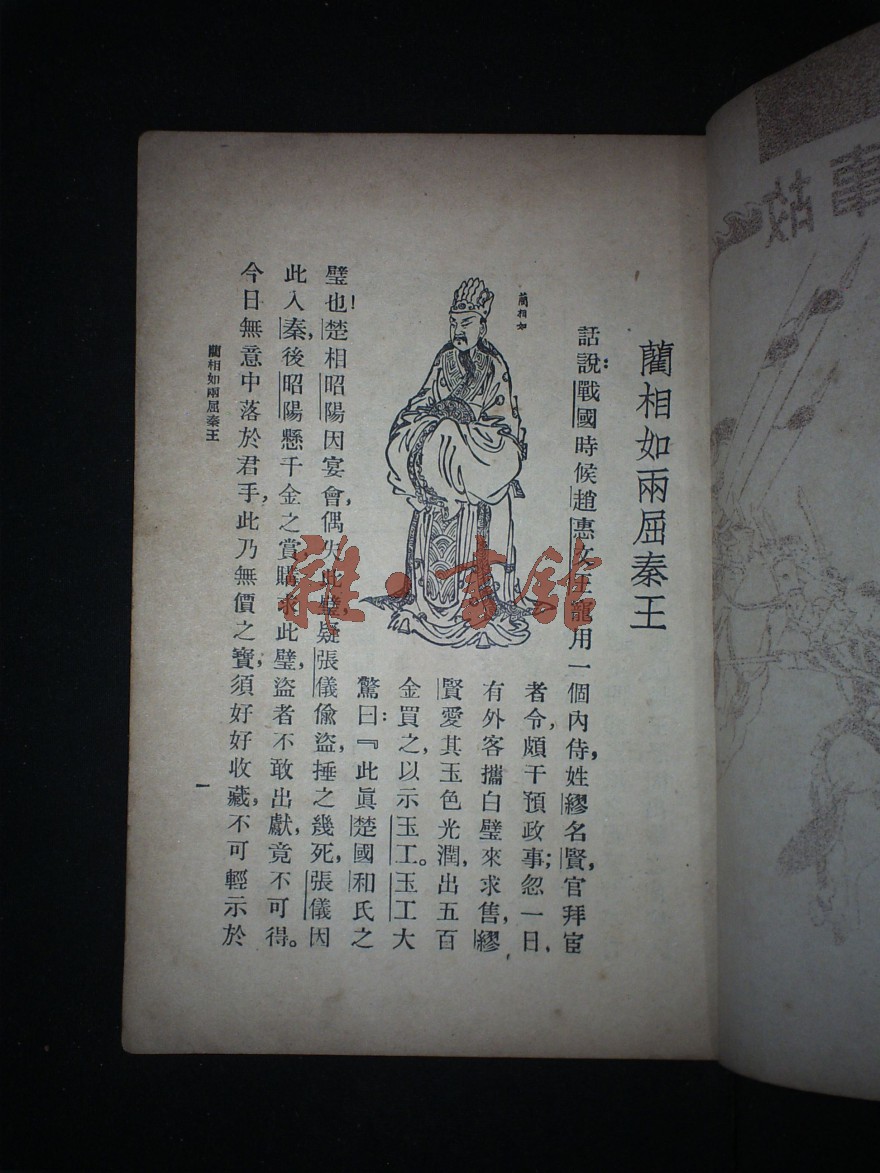 藺相如兩屈秦王
話說：戰國時候趙惠文王寵用一個內侍，姓繆名賢，官拜宦
者令，頗干預政事；忽一日，
有外客攜白璧來求售，繆
賢愛其玉色光潤，出五百
金買之，以示玉工。玉工大
驚曰：『此眞楚國和氏之
藺相如
璧也！楚相昭陽因宴會，偶失此璧，疑張儀偸盜，捶之幾死，張儀因
此入秦，後昭陽懸千金之賞，購求此璧，盜者不敢出獻，竟不可得。
今日無意中落於君手，此乃無價之寶，須好好收藏，不可輕示於
藺相如兩屈秦王
一
雜·書館
故事